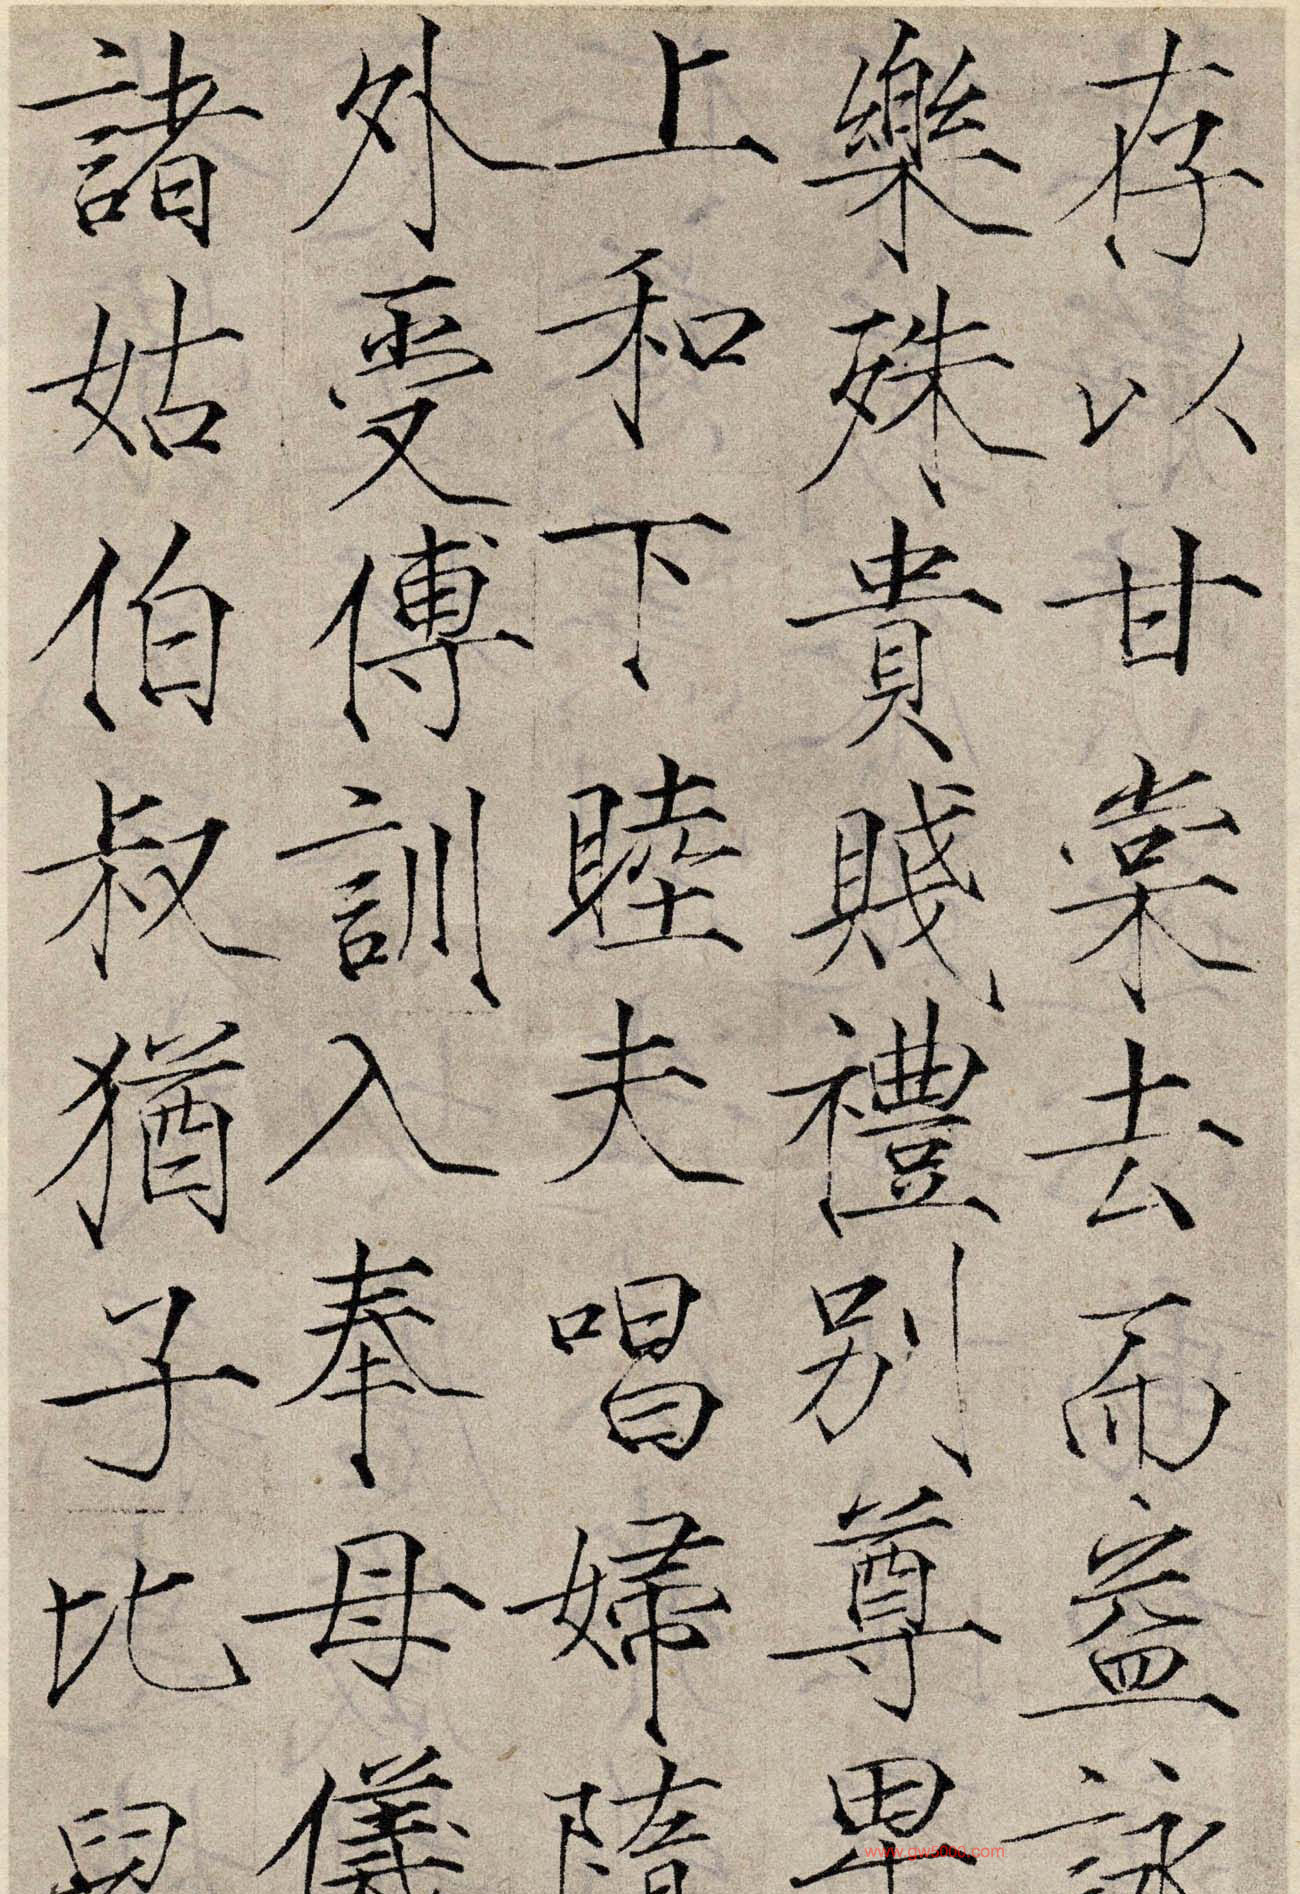 存以甘棠去而益詠
樂殊貴賤禮別尊卑
上和下睦夫唱婦隨
外受傅訓入奉母儀
諸姑伯叔猶子比兒
www.gw5000.com